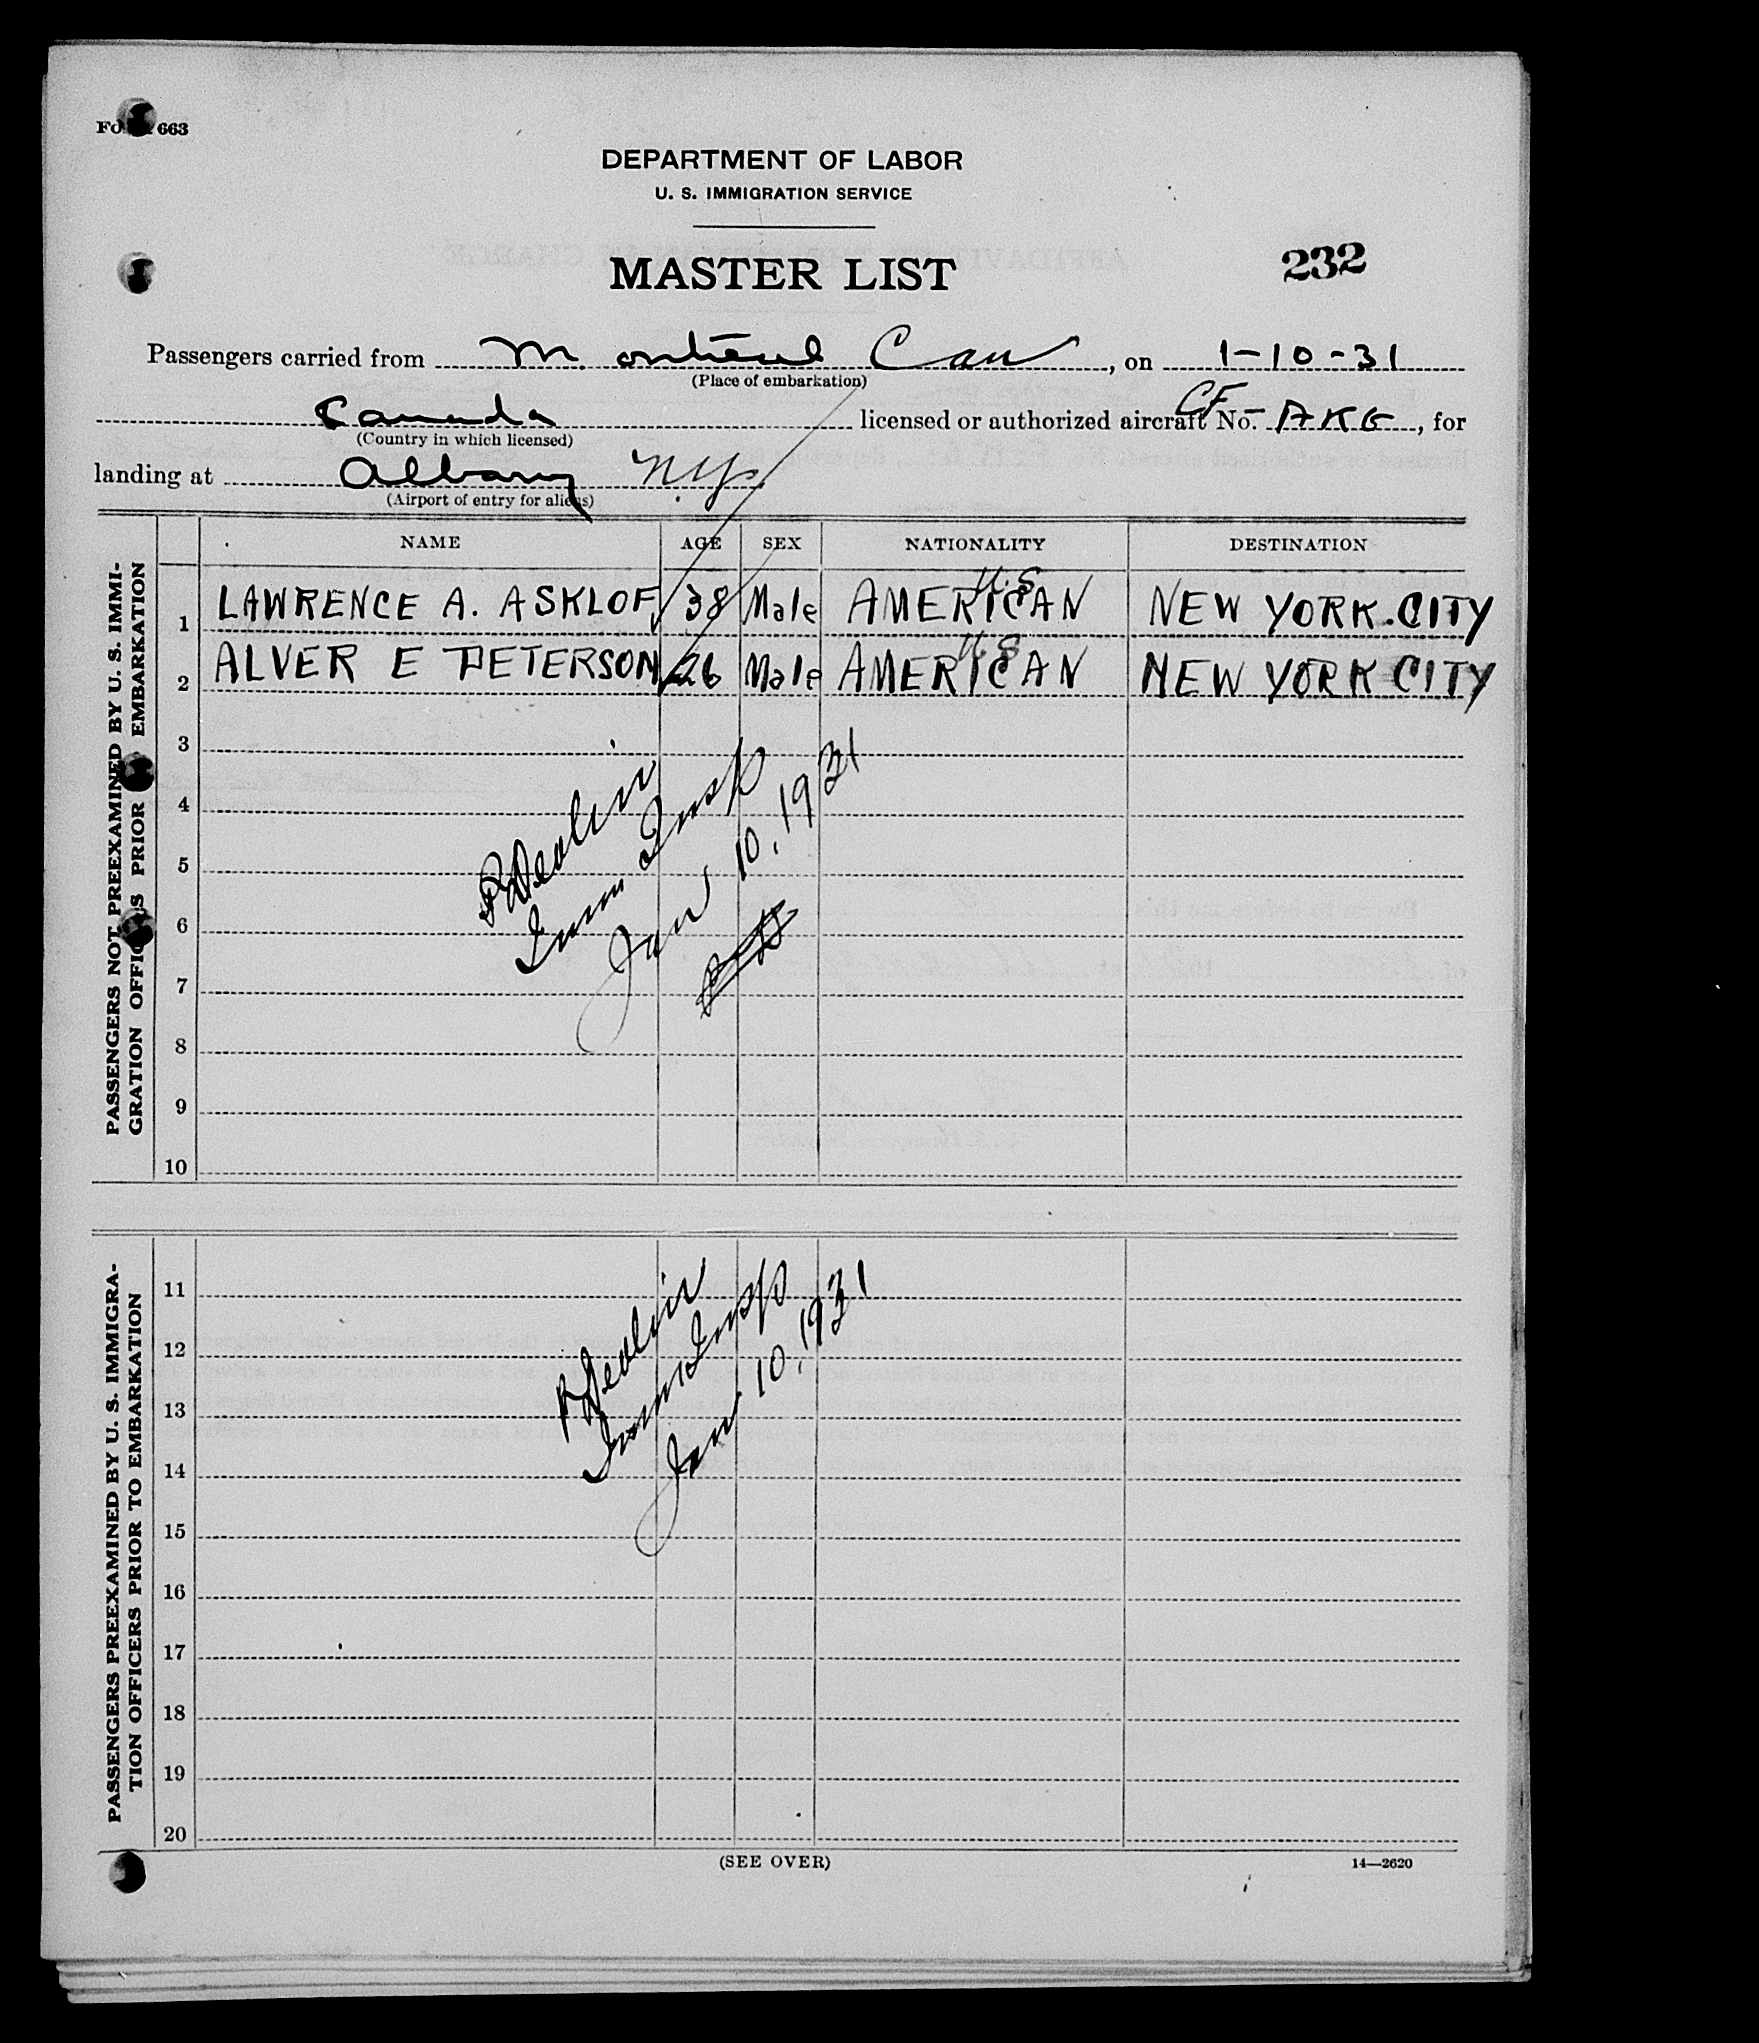 FORM 663
DEPARTMENT OF LABOR
U. S. IMMIGRATION SERVICE
MASTER LIST
232
Passengers carried from Montreal Can, on 1-10-31
(Place of embarkation)
Canada licensed or authorized aircraft No. CF-AKG, for
(Country in which licensed)
landing at Albany N.Y.
(Airport of entry for aliens)
NAME AGE SEX NATIONALITY DESTINATION
PASSENGERS NOT PREEXAMINED BY U. S. IMMI-
GRATION OFFICERS PRIOR EMBARKATION
U.S
1 LAWRENCE A. ASKLOF 38 Male AMERICAN NEW YORK CITY
U.S
2 ALVER E PETERSON 26 Male AMERICAN NEW YORK CITY
3
4
5
6
7
8
9
10
P Devlin
Imm Insp
Jan 10, 1931
PASSENGERS PREEXAMINED BY U. S. IMMIGRA-
TION OFFICERS PRIOR TO EMBARKATION
11
12
13
14
15
16
17
18
19
20
P Devlin
Imm Insp
Jan 10, 1931
(SEE OVER)
14—2620